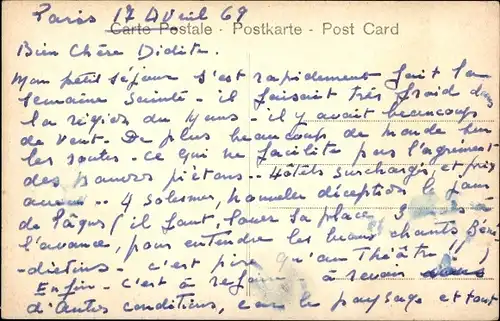 Paris 17 Avril 69
Carte Postale - Postkarte - Post Card
Bien Chère Didite.
Mon petit séjour s'est rapidement fait la
semaine Sainte - il faisait très froid dans
la région du Mans - il y avait beaucoup
de vent - De plus beaucoup de monde sur
les routes - ce qui ne facilite pas l'agrément
des pauvres piétons - Hôtels surchargés, et prix
aussi -- A Solesmes, nouvelle déception le jour
de Pâques (il faut louer sa place 3 à
l'avance, pour entendre les beaux chants Béné
-dictins - c'est pire qu'au Théâtre !! )
Enfin - c'est à refaire - à revoir dans
d'autres conditions, car le paysage et tout